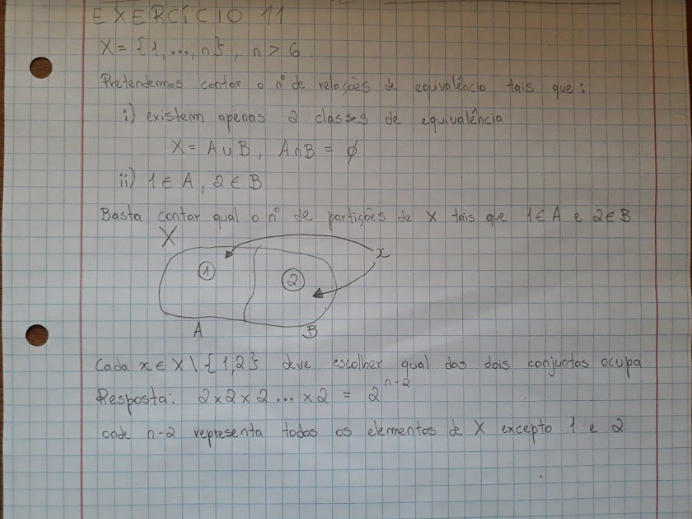 EXERCÍCIO 11
X = {1, ..., n}, n > 6
Pretendemos contar o nº de relações de equivalência tais que:
i) existem apenas 2 classes de equivalência
X = A ∪ B, A ∩ B = ∅
ii) 1 ∈ A, 2 ∈ B
Basta contar qual o nº de partições de X tais que 1 ∈ A e 2 ∈ B
X
x
1
2
A B
Cada x ∈ X \ {1,2} deve escolher qual dos dois conjuntos ocupa
Resposta: 2 x 2 x 2 ... x 2 = 2^{n-2}
onde n-2 representa todos os elementos de X excepto 1 e 2